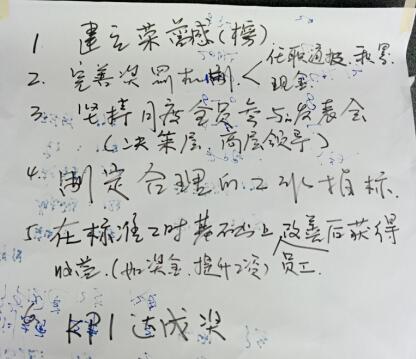 1 建立荣誉感(榜)
2. 完善奖罚机制. < 任职通报. 积累.
现金
3. 坚持月度全员参与发表会
(决策层、高层领导)
4. 制定合理的工业指标.
5 在标准工时基础上改善后获得
收益.(如奖金.提升工资) 员工.
6. KPI 达成奖